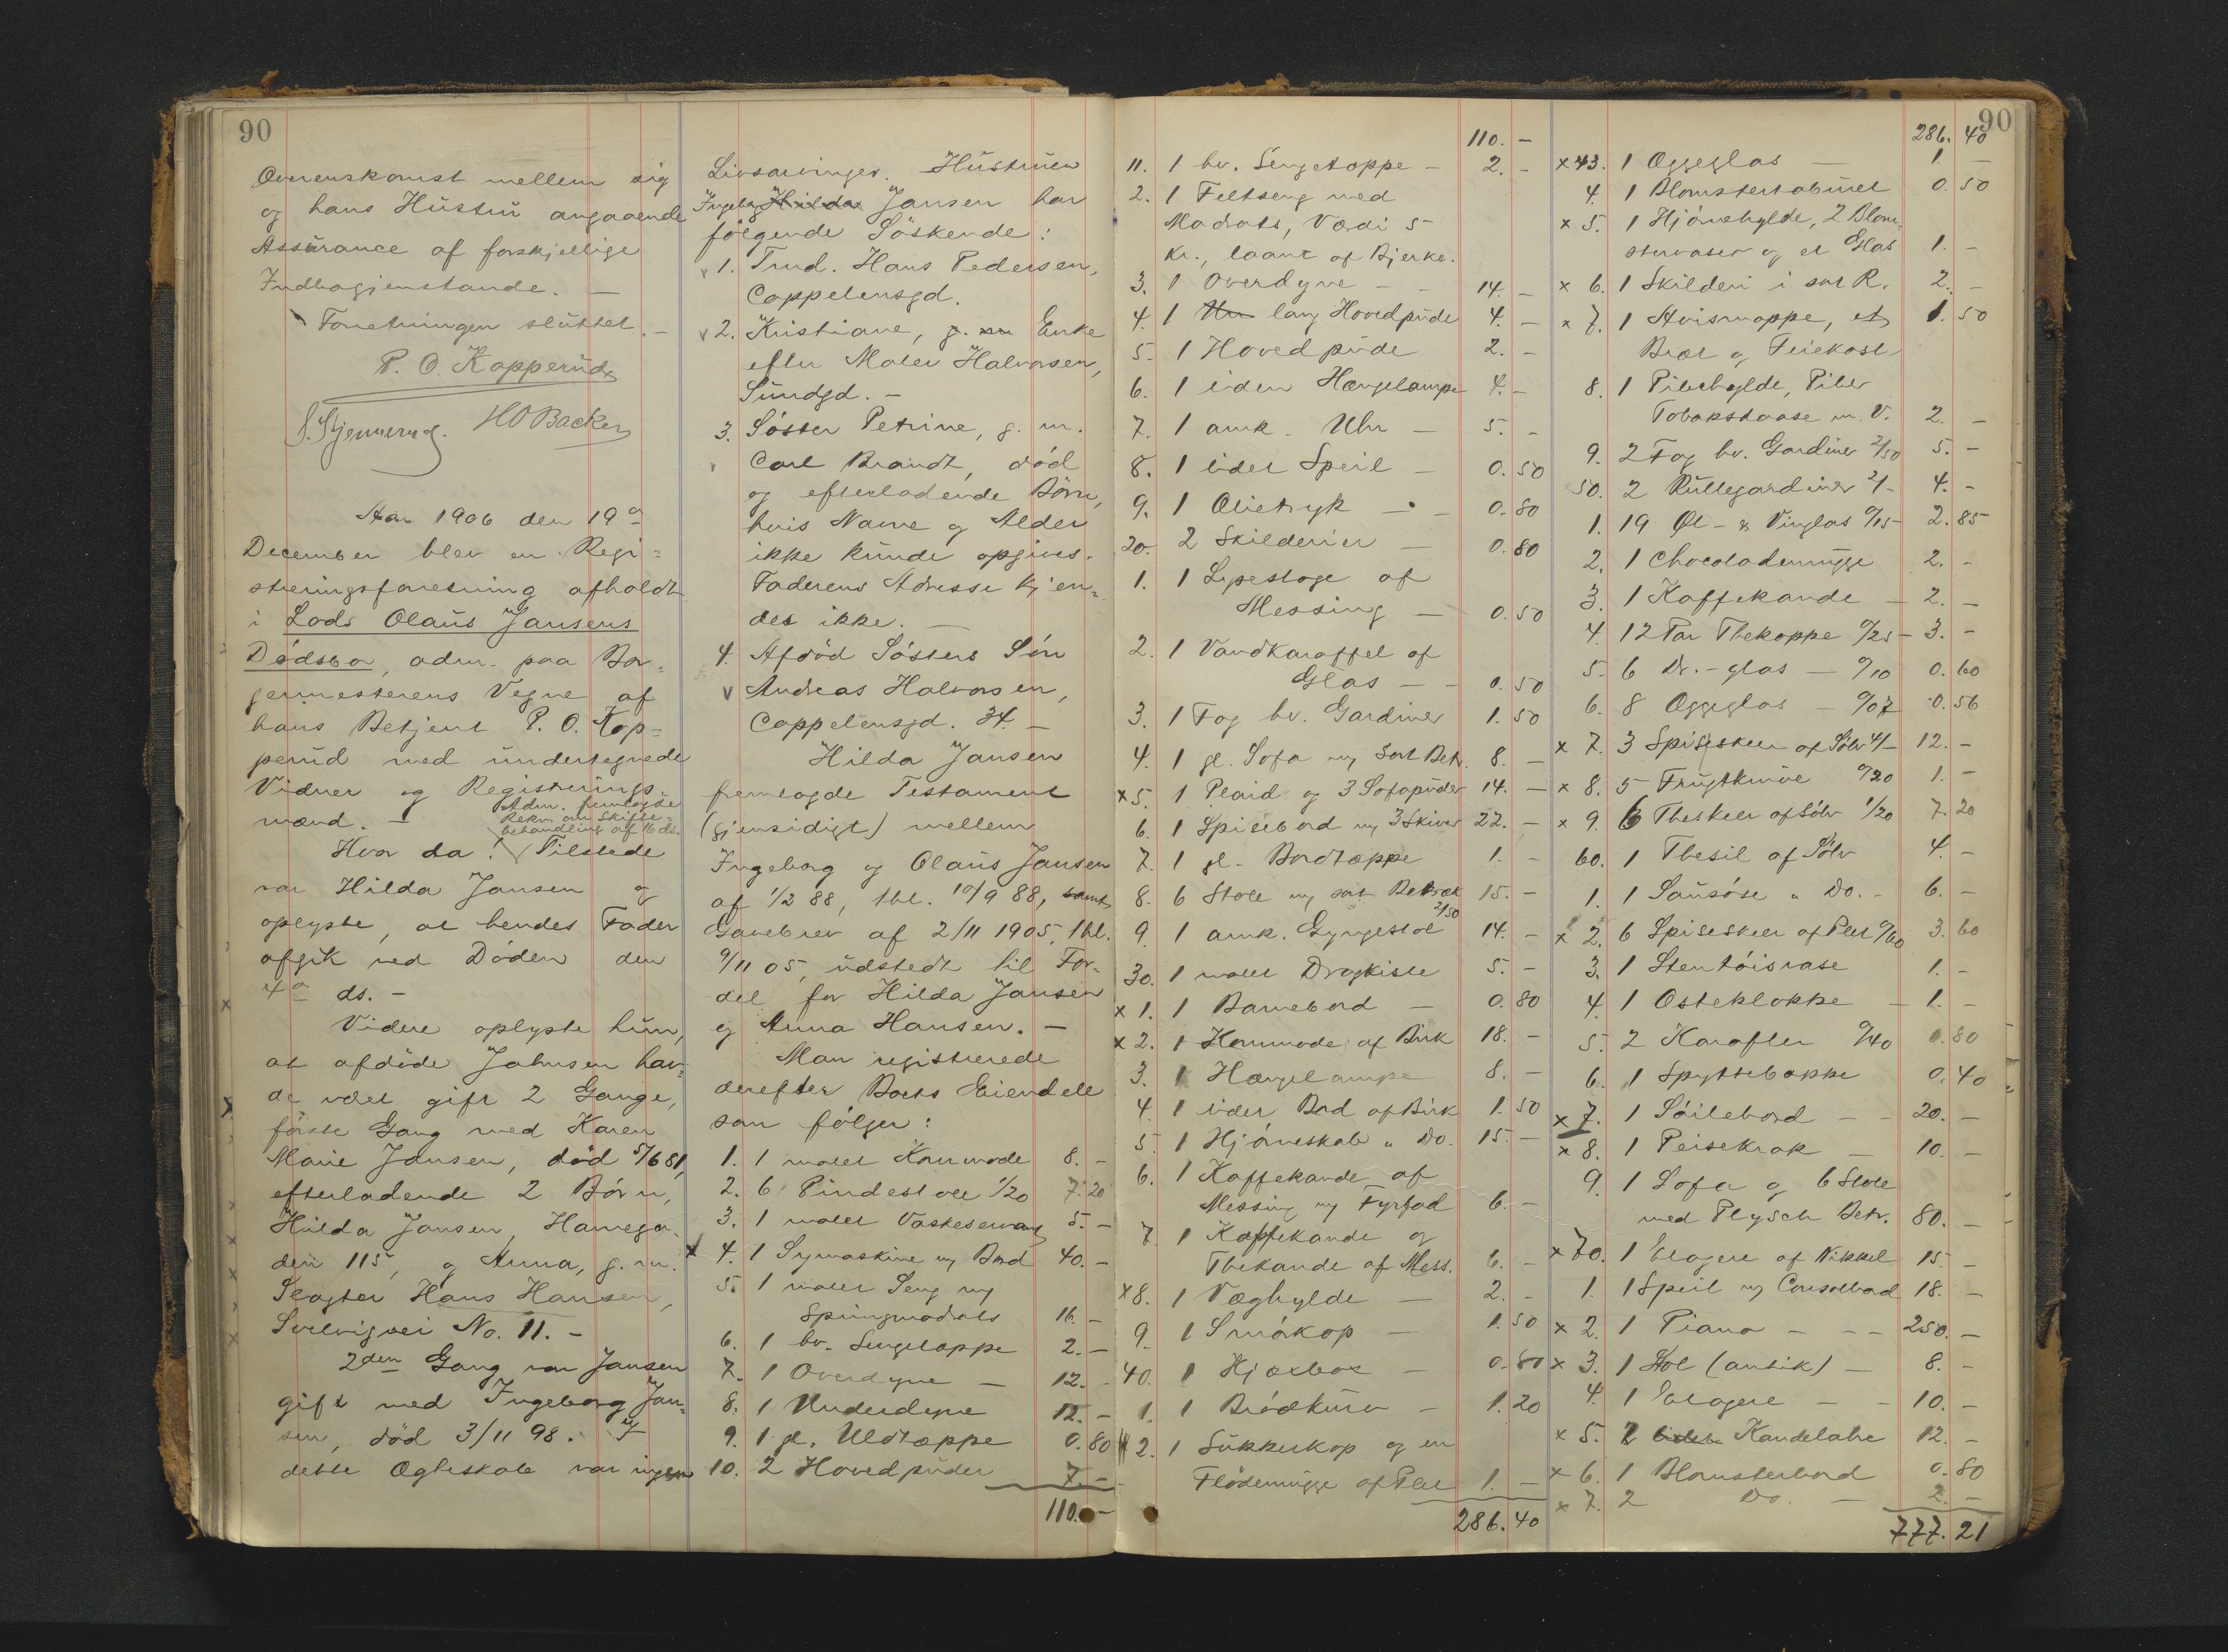 90
Overenskomst mellem sig
og hans Hustru angaaende
Assurance af forskjellige
Indbogjenstande. —
Forretningen sluttet. —
P. O. Kopperud
H O Backer
Aar 1906 den 19de
December blev en Regi=
streringsforretning afholdt
i Lods Olaus Jansens
Dødsbo, adm. paa Bor=
germesterens Vegne af
hans Betjent P. O. Kop=
perud med undertegnede
Vidner og Registrerings-
mænd. —
Adm. fremlagde
Rekv. om Skifte=
behandling af 16 ds.
Hvor da! Tilstede
var Hilda Jansen og
oplyste, at hendes Fader
afgik ved Døden den
4de ds. —
Videre oplyste hun,
at afdøde Jahnsen hav=
de været gift 2 Gange,
første Gang med Karen
Marie Jansen, død 5/6 81,
efterladende 2 Børn,
Hilda Jansen, Havnega-
den 115, og Anna, g. m.
Slagter Hans Hansen,
Solvigvei No. 11. —
2den Gang var Jansen
gift med Ingeborg Jan=
sen, død 3/11 98. I
dette Ægteskab var ingen
Livsarvinger. Hustruen
Ingeborg Hilda Jansen har
følgende Söskende:
1. Trud. Hans Pedersen,
Coppelensgd.
2. Kristiane, g. m Enke
efter Maler Halvorsen,
Sundgd. —
3. Söster Petrine, g. m.
Carl Brandt, død
og efterladende Børn,
hvis Navne og Alder
ikke kunde opgives.
Faderens Adresse kjen=
des ikke. —
4. Afdød Søsters Søn
Andreas Halvorsen,
Coppelensgd. 34. —
Hilda Jansen
fremlagde Testament
(gjensidigt) mellem
Ingeborg og Olaus Jansen
af 1/2 88, thl. 10/9 88, samt
Gavebrev af 2/11 1905, thl.
9/11 05, udstedt til For-
del for Hilda Jansen
og Anna Hansen. —
Man registrerede
derefter Boets Eiendele
som følger:
1. 1 malet Kommode 8. -
2. 6 Pindestole 1/20 7. 20
3. 1 malet Vaskeservant 5. -
x 4. 1 Symaskine m/ Bord 40. -
5. 1 malet Seng m/
Springmadrats 16. -
6. 1 hv. Sengetæppe 2. -
7. 1 Overdyne — 12. -
8. 1 Underdyne 12. -
9. 1 gl. Uldtæppe 0. 80
10. 2 Hovedpuder 7. -
110. -
110. -
11. 1 hv. Sengetæppe — 2. -
2. 1 Feltseng med
Madrats, Værdi 5
Kr., laant af Bjerke.
3. 1 Overdyne — 14. -
4. 1 lang Hovedpude 4. -
5. 1 Hovedpude 2. -
6. 1 liden Hængelampe 4. -
7. 1 amk. Uhr — 5. -
8. 1 lidet Speil — 0. 50
9. 1 Olietryk — 0. 80
20. 2 Skilderier — 0. 80
1. 1 Lysestage af
Messing — 0. 50
2. 1 Vandkaraffel af
Glas — 0. 50
3. 1 Fag hv. Gardiner 1. 50
4. 1 gl. Sofa m/ sort Betr. 8. -
x 5. 1 Plaid og 3 Sofapuder 14. -
6. 1 Spisebord m/ 3 Skiver 22. -
7. 1 gl. Bordtæppe 1. -
8. 6 Stole m/ sort Betræk 2/50 15. -
9. 1 amk. Gyngestol 14. -
30. 1 malet Dragkiste 5. -
x 1. 1 Barnebord — 0. 80
x 2. 1 Kommode af Birk 18. -
3. 1 Hængelampe 8. -
4. 1 lidet Bord af Birk 1. 50
5. 1 Hjörneskab " Do. 15. -
6. 1 Kaffekande af
Messing m/ Fyrfad 6. -
7. 1 Kaffekande og
Thekande af Mess. 6. -
x 8. 1 Væghylde — 2. -
9. 1 Smörkop — 1. 50
40. 1 Kjæxbox — 0. 80
1. 1 Brödkurv — 1. 20
2. 1 Sukkerkop og en
Flødemugge af Plet 1. -
286. 40
90
286. 40
x 43. 1 Æggeglas — 1. -
4. 1 Blomstertabouret 0. 50
x 5. 1 Hjörnehylde, 2 Blom-
stervaser og et Glas 1. -
x 6. 1 Skilderi i sort R. 2. -
x 7. 1 Avismappe, et 1. 50
Bræt og Feiekost
8. 1 Pibehylde, Piber
Tobaksdaase m. V. 2. -
9. 2 Fag hv. Gardiner 2/50 5. -
50. 2 Rullegardiner 2/- 4. -
1. 19 Øl- & Vinglas 0/15 2. 85
2. 1 Chocolademugge 2. -
3. 1 Kaffekande — 2. -
4. 12 Par Thekopper 0/25 — 3. -
5. 6 Dr.-glas — 0/10 0. 60
6. 8 Æggeglas — 0/07 0. 56
x 7. 3 Spiseskeer af Sölv 4/- 12. -
x 8. 5 Frugtknive 0/20 1. -
x 9. 6 Theskeer af Sölv 1/20 7. 20
60. 1 Thesil af Sölv 4. -
1. 1 Sausöse " Do. — 6. -
x 2. 6 Spiseskeer af Plet 0/60 3. 60
3. 1 Stentöisvase 1. -
4. 1 Osteklokke — 1. -
5. 2 Karafler 0/40 0. 80
6. 1 Spyttebakke 0. 40
x 7. 1 Söilebord — 20. -
x 8. 1 Peisekrak — 10. -
9. 1 Sofa og 6 Stole
med Plysch Betr. 80. -
x 70. 1 Etagere af Nikkel 15. -
1. 1 Speil m/ Consolbord 18. -
x 2. 1 Piano — 250. -
x 3. 1 Stol (antik) — 8. -
4. 1 Etagere — 10. -
x 5. 2 Kandelabre 12. -
x 6. 1 Blomsterbord 0. 80
x 7. 2 Do. — 2. -
777. 21